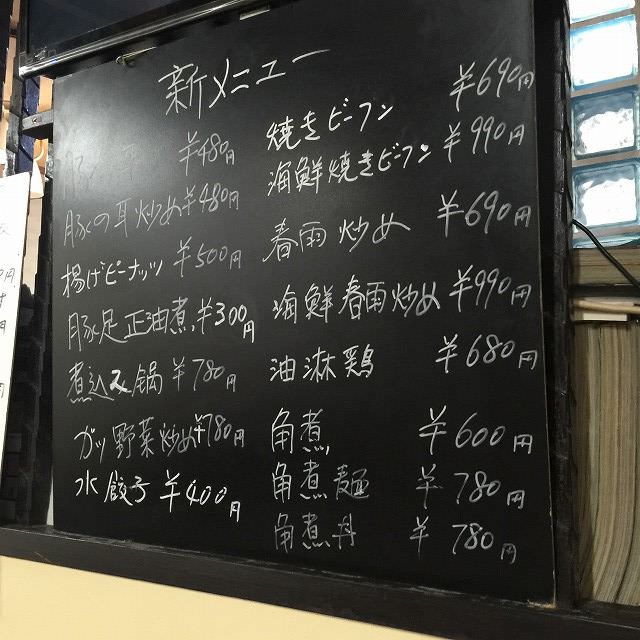 新メニュー
豚 ¥480円
豚の耳炒め ¥480円
揚げピーナッツ ¥500円
豚足正油煮 ¥300円
煮込み鍋 ¥780円
ガツ野菜炒め ¥780円
水餃子 ¥400円
焼きビーフン ¥690円
海鮮焼きビーフン ¥990円
春雨炒め ¥690円
海鮮春雨炒め ¥990円
油淋鶏 ¥680円
角煮 ¥600円
角煮麺 ¥780円
角煮丼 ¥780円